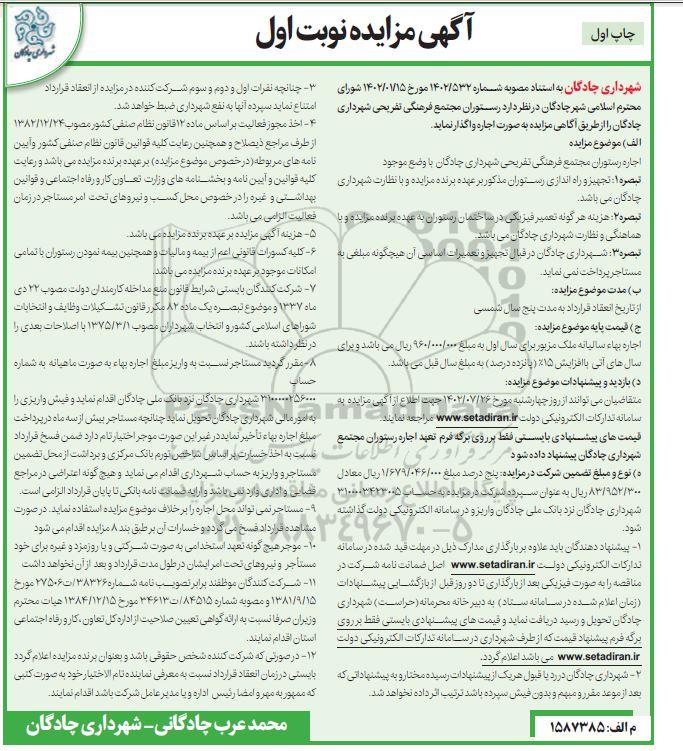 چاپ اول
آگهی مزایده نوبت اول
شهرداری چادگان
شهرداری چادگان به استناد مصوبه شماره ۱۴۰۲/۵۳۲ مورخ ۱۴۰۲/۰۱/۱۵ شورای
محترم اسلامی شهر چادگان در نظر دارد رستوران مجتمع فرهنگی تفریحی شهرداری
چادگان را از طریق آگاهی مزایده به صورت اجاره واگذار نماید.
الف) موضوع مزایده
اجاره رستوران مجتمع فرهنگی تفریحی شهرداری چادگان با وضع موجود
تبصره۱: تجهیز و راه اندازی رستوران مذکور بر عهده برنده مزایده و با نظارت شهرداری
چادگان می باشد.
تبصره۲: هزینه هر گونه تعمیر فیزیکی در ساختمان رستوران به عهده برنده مزایده و با
هماهنگی و نظارت شهرداری چادگان می باشد.
تبصره۳: شهرداری چادگان در قبال تجهیز و تعمیرات اساسی آن هیچگونه مبلغی به
مستاجر پرداخت نمی نماید.
ب) مدت موضوع مزایده:
از تاریخ انعقاد قرارداد به مدت پنج سال شمسی
ج) قیمت پایه موضوع مزایده:
اجاره بهاء سالیانه ملک مزبور برای سال اول به مبلغ ۹۶۰/۰۰۰/۰۰۰ ریال می باشد و برای
سال های آتی با افزایش ۱۵٪ (پانزده درصد) به مبلغ سال قبل می باشد.
د) بازدید و پیشنهادات موضوع مزایده:
متقاضیان می توانند از روز چهارشنبه مورخ ۱۴۰۲/۰۷/۲۶ جهت اطلاع از آگهی مزایده به
سامانه تدارکات الکترونیکی دولت www.setadiran.ir مراجعه نمایند
قیمت های پیشنهادی بایستی فقط بر روی برگه فرم تعهد اجاره رستوران مجتمع
شهرداری چادگان پیشنهاد داده شود
ه) نوع و مبلغ تضمین شرکت در مزایده: پنج درصد مبلغ ۱/۶۷۹/۰۴۶/۰۰۰ ریال معادل
۸۳/۹۵۲/۳۰۰ ریال به عنوان سپرده شرکت در مزایده به حساب ۳۱۰۰۰۰۳۴۲۳۰۰۵
شهرداری چادگان نزد بانک ملی چادگان واریز و در سامانه الکترونیکی دولت گذاشته
شود.
۱- پیشنهاد دهندگان باید علاوه بر بارگذاری مدارک ذیل در مهلت قید شده در سامانه
تدارکات الکترونیکی دولت www.setadiran.ir اصل ضمانت نامه شرکت در
مناقصه را به صورت فیزیکی بعد از بارگذاری تا دو روز قبل از بازگشایی پیشنهادات
(زمان اعلام شده در سامانه ستاد) به دبیر خانه محرمانه (حراست) شهرداری
چادگان تحویل و رسید دریافت نماید و قیمت های پیشنهادی بایستی فقط بر روی
برگه فرم پیشنهاد قیمت که از طرف شهرداری در سامانه تدارکات الکترونیکی دولت
www.setadiran.ir می باشد اعلام گردد.
۲- شهرداری چادگان در رد یا قبول هر یک از پیشنهادات رسیده مختار و به پیشنهاداتی که
بعد از موعد مقرر و مبهم و بدون فیش سپرده باشد ترتیب اثر داده نخواهد شد.
۳- چنانچه نفرات اول و دوم و سوم شرکت کننده در مزایده از انعقاد قرارداد
امتناع نماید سپرده آنها به نفع شهرداری ضبط خواهد شد.
۴- اخذ مجوز فعالیت بر اساس ماده ۱۲ قانون نظام صنفی کشور مصوب ۱۳۸۲/۱۲/۲۴
از طرف مراجع ذیصلاح و همچنین رعایت کلیه قوانین قانون نظام صنفی کشور و آیین
نامه های مربوطه (در خصوص موضوع مزایده) بر عهده برنده مزایده می باشد و رعایت
کلیه قوانین و آیین نامه و بخشنامه های وزارت تعاون کار و رفاه اجتماعی و قوانین
بهداشتی و غیره را در خصوص محل کسب و نیروهای تحت امر مستاجر در زمان
فعالیت الزامی می باشد.
۵- هزینه آگهی مزایده بر عهده برنده مزایده می باشد.
۶- کلیه کسورات قانونی اعم از بیمه و مالیات و همچنین بیمه نمودن رستوران با تمامی
امکانات موجود بر عهده برنده مزایده می باشد.
۷- شرکت کنندگان بایستی شرایط قانون منع مداخله کارمندان دولت مصوب ۲۲ دی
ماه ۱۳۳۷ و موضوع تبصره یک ماده ۸۲ مکرر قانون تشکیلات وظایف و انتخابات
شوراهای اسلامی کشور و انتخاب شهرداران مصوب ۱۳۷۵/۳/۱ با اصلاحات بعدی را
در نظر داشته باشند.
۸- مقرر گردید مستاجر نسبت به واریز مبلغ اجاره بهاء به صورت ماهیانه به شماره
حساب
۳۱۰۰۰۰۰۲۵۶۰۰۰ شهرداری چادگان نزد بانک ملی چادگان اقدام نماید و فیش واریزی را
به امور مالی شهرداری چادگان تحویل نماید چنانچه مستاجر بیش از سه ماه در پرداخت
مبلغ اجاره بهاء تأخیر نماید در غیر این صورت موجر اختیار تام دارد ضمن فسخ قرارداد
نسبت به اخذ خسارت بر اساس شاخص تورم بانک مرکزی و برداشت از محل تضمین
مستاجر و واریز به حساب شهرداری اقدام می نماید و هیچ گونه اعتراضی در مراجع
قضائی و اداری وارد نمی باشد و ارایه ضمانت نامه بانکی تا پایان قرارداد الزامی است.
۹- مستاجر نمی تواند محل اجاره را بر خلاف موضوع مزایده استفاده نماید. در صورت
مشاهده قرارداد فسخ می گردد و خسارات آن بر طبق بند ۸ مزایده اقدام می شود
۱۰- موجر هیچ گونه تعهد استخدامی به صورت شرکتی و یا روزمزد و غیره برای خود
مستأجر و نیروهای تحت امر ایشان در طول مدت قرارداد و بعد از آن نخواهد داشت
۱۱- شرکت کنندگان موظفند برابر تصویب نامه شماره ۳۸۳۲۶/ت۲۷۵۰۶ مورخ
۱۳۸۱/۹/۱۵ و مصوبه شماره ۸۴۵۱۵/ت۳۴۶۱۳ مورخ ۱۳۸۴/۱۲/۱۵ هیات محترم
وزیران صرفا نسبت به ارائه گواهی تعیین صلاحیت از اداره کل تعاون، کار و رفاه اجتماعی
استان اقدام نمایند.
۱۲- در صورتی که شرکت کننده شخص حقوقی باشد و بعنوان برنده مزایده اعلام گردد
بایستی در زمان انعقاد قرارداد نسبت به معرفی نماینده تام الاختیار خود به صورت کتبی
که ممهور به مهر و امضا رئیس اداره و یا مدیر عامل شرکت باشد اقدام نمایند.
م الف: ۱۵۸۷۳۸۵
محمد عرب چادگانی- شهرداری چادگان
۰۲۱-۸۸۳۴۹۶۷۰-۵